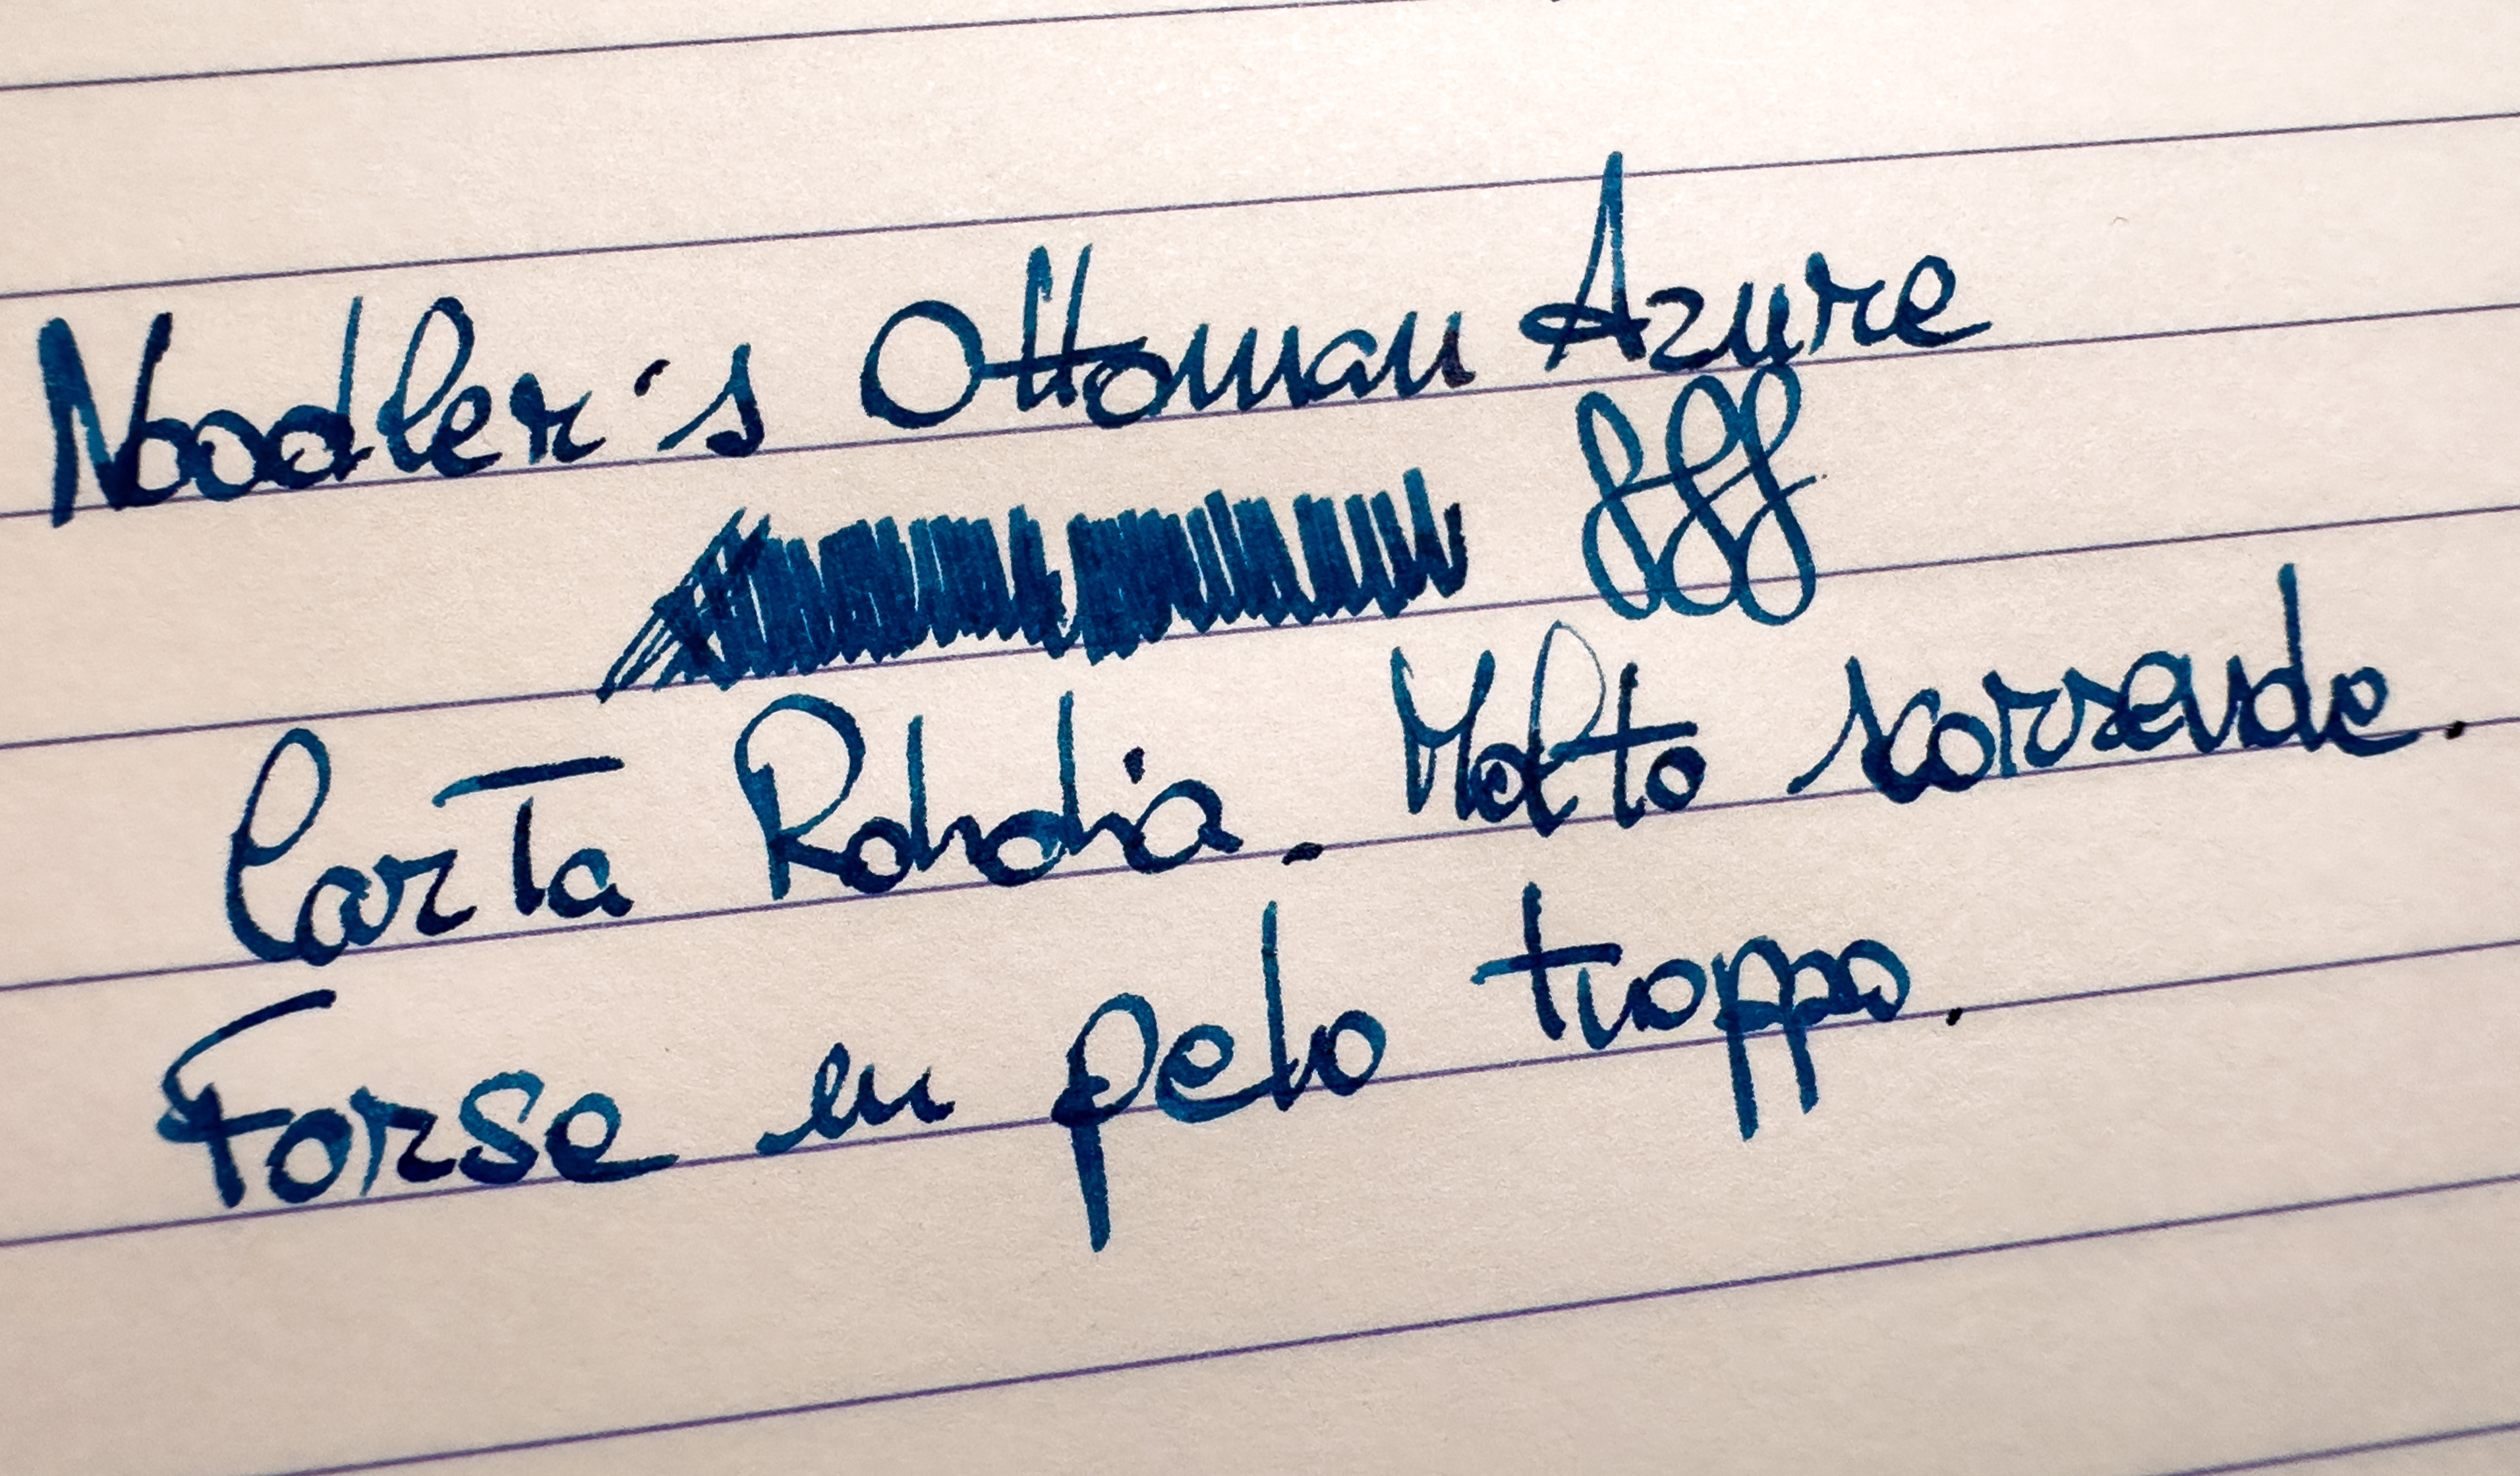 Noodler's Ottoman Azure
Carta Rohdia. Molto scorrevole.
Forse un pelo troppo.